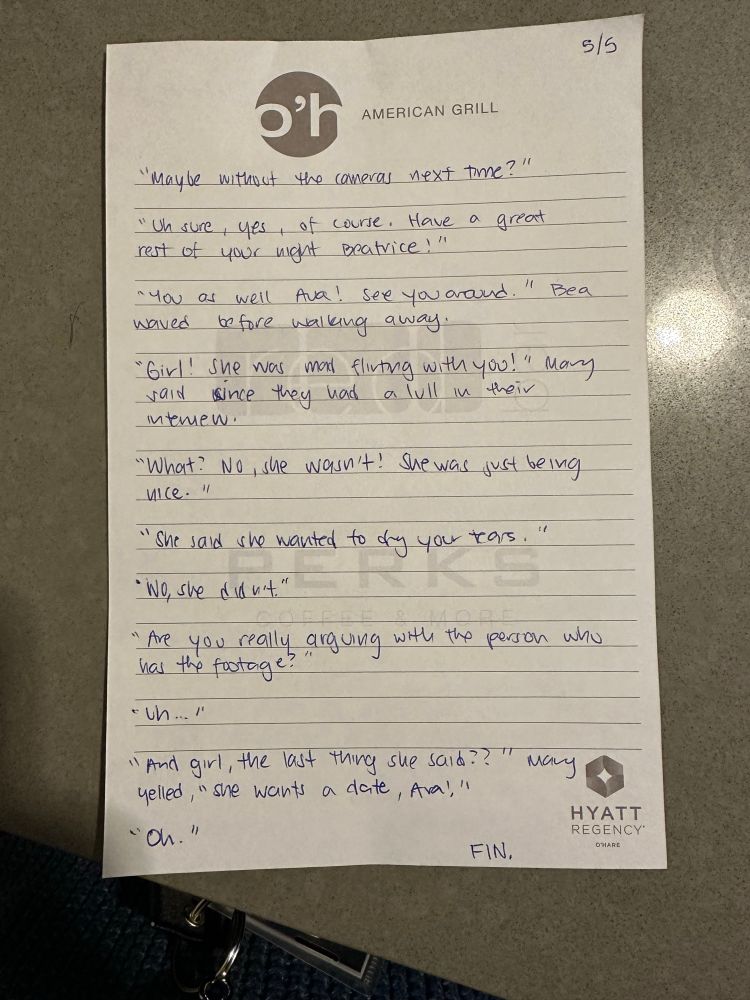 5/5
o'h AMERICAN GRILL
"Maybe without the cameras next time?"
"Uh sure, yes, of course. Have a great
rest of your night Beatrice!"
"You as well Ava! See you around." Bea
waved before walking away.
"Girl! She was mad flirting with you!" Mary
said since they had a lull in their
interview.
"What? No, she wasn't! She was just being
nice."
"She said she wanted to dry your tears."
"No, she didn't."
"Are you really arguing with the person who
has the footage?"
"Uh..."
"And girl, the last thing she said??" Mary
yelled, "she wants a date, Ava!"
"Oh."
FIN.
HYATT
REGENCY
O'HARE
PERKS
COFFEE & MORE